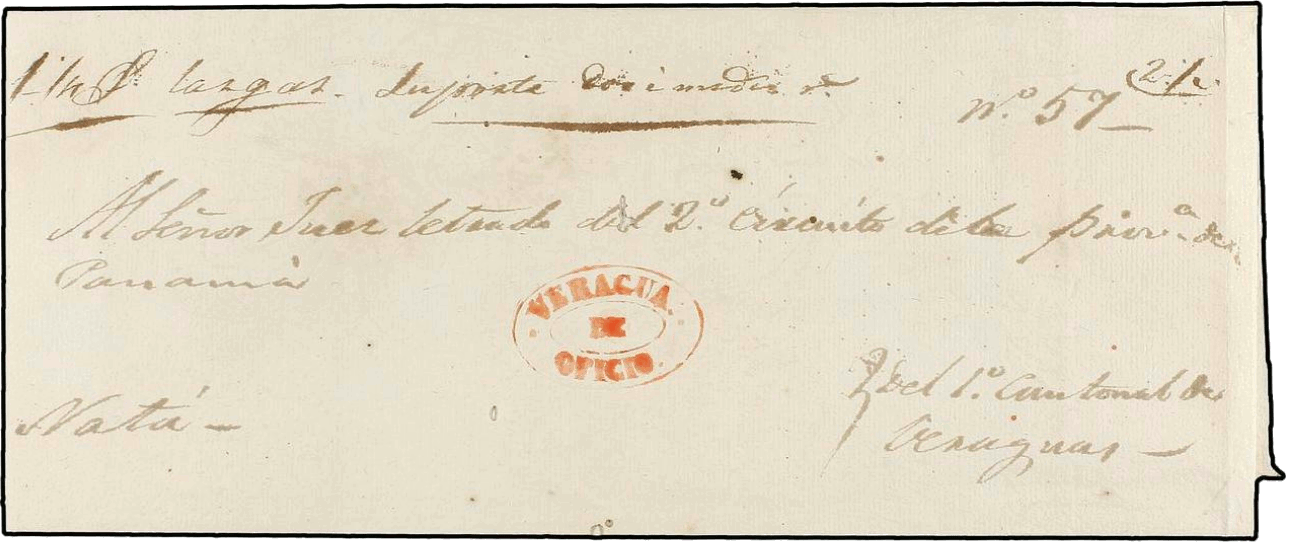 largas. Importe dos i medio r.^s
n.º 57
2 ½
Al Señor Juez letrado del 2.º circuito de la prov.ª de
Panamá
VERAGUA.
DE
OFICIO.
Natá
del 1.º Cantonal de
Veraguas